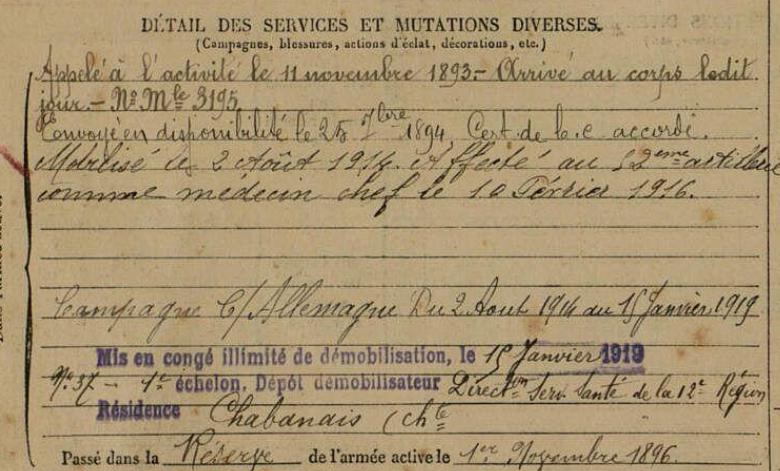 DÉTAIL DES SERVICES ET MUTATIONS DIVERSES.
(Campagnes, blessures, actions d'éclat, décorations, etc.)
Appelé à l'activité le 11 novembre 1893.- Arrivé au corps ledit
jour.- No Mle 3195
Envoyé en disponibilité le 25 7bre 1894, Cert. de b.c accordé.
Mobilisé le 2 Août 1914. Affecté au 52eme artillerie
comme médecin chef le 10 Février 1916.
Campagne C/ Allemagne Du 2 Aout 1914 au 15 Janvier 1919
Mis en congé illimité de démobilisation, le 15 Janvier 1919
No 37 - 1er échelon. Dépôt démobilisateur Direct.on Serv. Santé de la 12e Région
Résidence Chabanais (Chte
Passé dans la Réserve de l'armée active le 1er Novembre 1896.